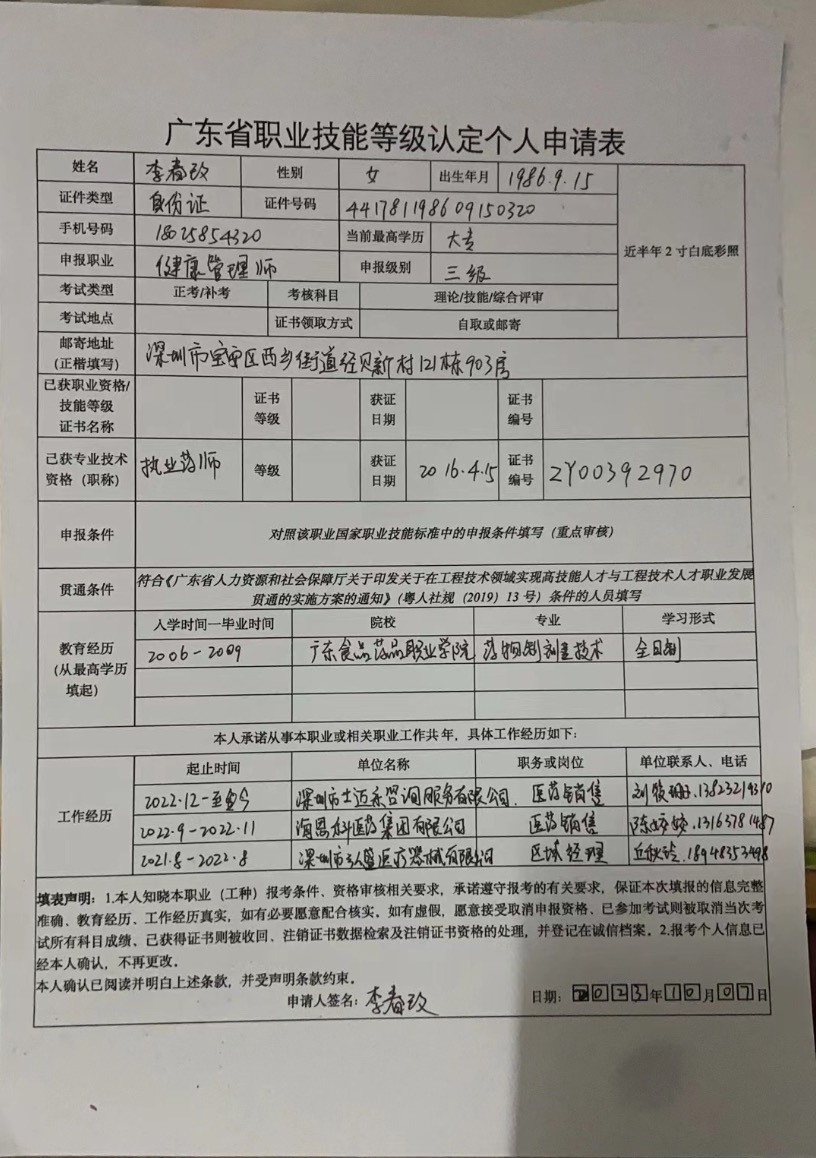 广东省职业技能等级认定个人申请表
姓名 李春玫 性别 女 出生年月 1986.9.15
证件类型 身份证 证件号码 441781198609150320
近半年2寸白底彩照
手机号码 18025854320 当前最高学历 大专
申报职业 健康管理师 申报级别 三级
考试类型 正考/补考 考核科目 理论/技能/综合评审
考试地点 证书领取方式 自取或邮寄
邮寄地址
(正楷填写) 深圳市宝安区西乡街道径贝新村121栋903房
已获职业资格/
技能等级
证书名称
证书
等级
获证
日期
证书
编号
已获专业技术
资格(职称) 执业药师 等级
获证
日期 2016.4.15
证书
编号 ZY00392970
申报条件 对照该职业国家职业技能标准中的申报条件填写(重点审核)
贯通条件 符合《广东省人力资源和社会保障厅关于印发关于在工程技术领域实现高技能人才与工程技术人才职业发展
贯通的实施方案的通知》(粤人社规(2019)13号)条件的人员填写
教育经历
(从最高学历
填起)
入学时间一毕业时间 院校 专业 学习形式
2006-2009 广东食品药品职业学院 药物制剂技术 全日制
本人承诺从事本职业或相关职业工作共 年,具体工作经历如下:
工作经历
起止时间 单位名称 职务或岗位 单位联系人、电话
2022.12-至今 深圳市士迈禾咨询服务有限公司. 医药销售 刘 .13823219310
2022.9-2022.11 海思科医药集团有限公司 医药销售 陈婷婷.13163781487
2021.8-2022.8 深圳市 医疗器械有限公司 区域经理 丘 .18948353498
填表声明:1.本人知晓本职业(工种)报考条件、资格审核相关要求,承诺遵守报考的有关要求,保证本次填报的信息完整
准确、教育经历、工作经历真实,如有必要愿意配合核实。如有虚假,愿意接受取消申报资格、已参加考试则被取消当次考
试所有科目成绩、已获得证书则被收回、注销证书数据检索及注销证书资格的处理,并登记在诚信档案。2.报考个人信息已
经本人确认,不再更改。
本人确认已阅读并明白上述条款,并受声明条款约束。
申请人签名: 李春玫 日期: 2023年10月07日